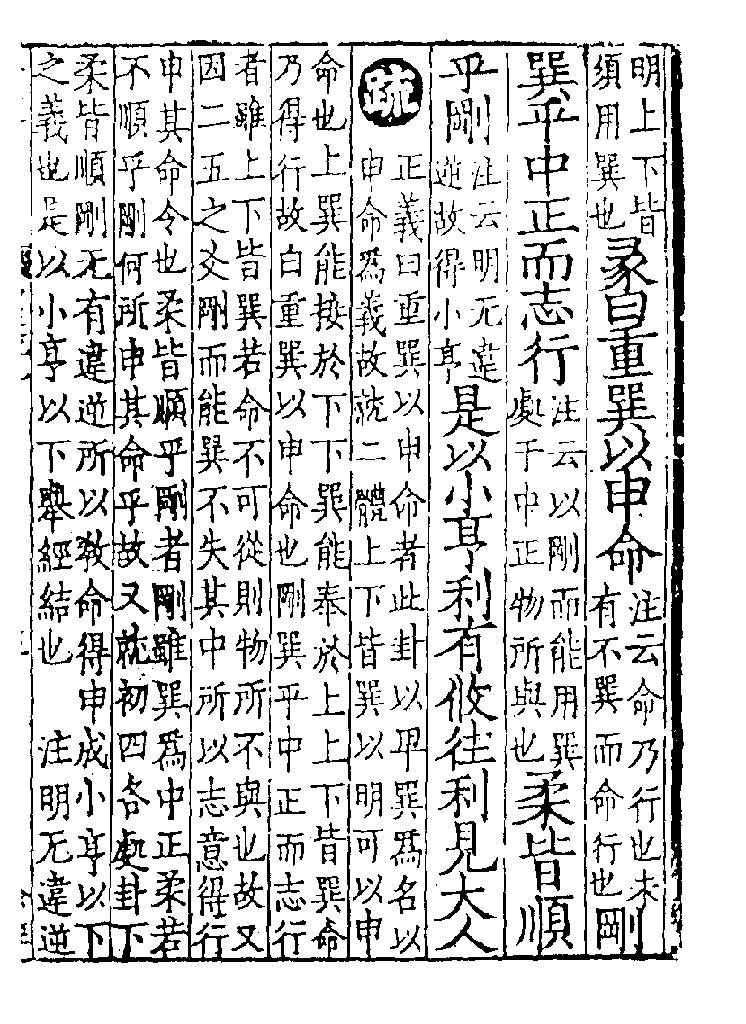 明上下皆
須用巽也
彖曰重巽以申命
注云命乃行也未
有不巽而命行也
剛
巽乎中正而志行
注云以剛而能用巽
處于中正物所與也
柔皆順
乎剛
注云明无違
逆故得小亨
是以小亨利有攸往利見大人
疏
正義曰重巽以申命者此卦以卑巽爲名以
申命爲義故就二體上下皆巽以明可以申
命也上巽能接於下下巽能奉於上上下皆巽命
乃得行故曰重巽以申命也剛巽乎中正而志行
者雖上下皆巽若命不可從則物所不與也故又
因二五之爻剛而能巽不失其中所以志意得行
申其命令也柔皆順乎剛者剛雖巽爲中正柔若
不順乎剛何所申其命乎故又就初四各處卦下
柔皆順剛无有違逆所以教命得申成小亨以下
之義也是以小亨以下舉經結也　注明无違逆